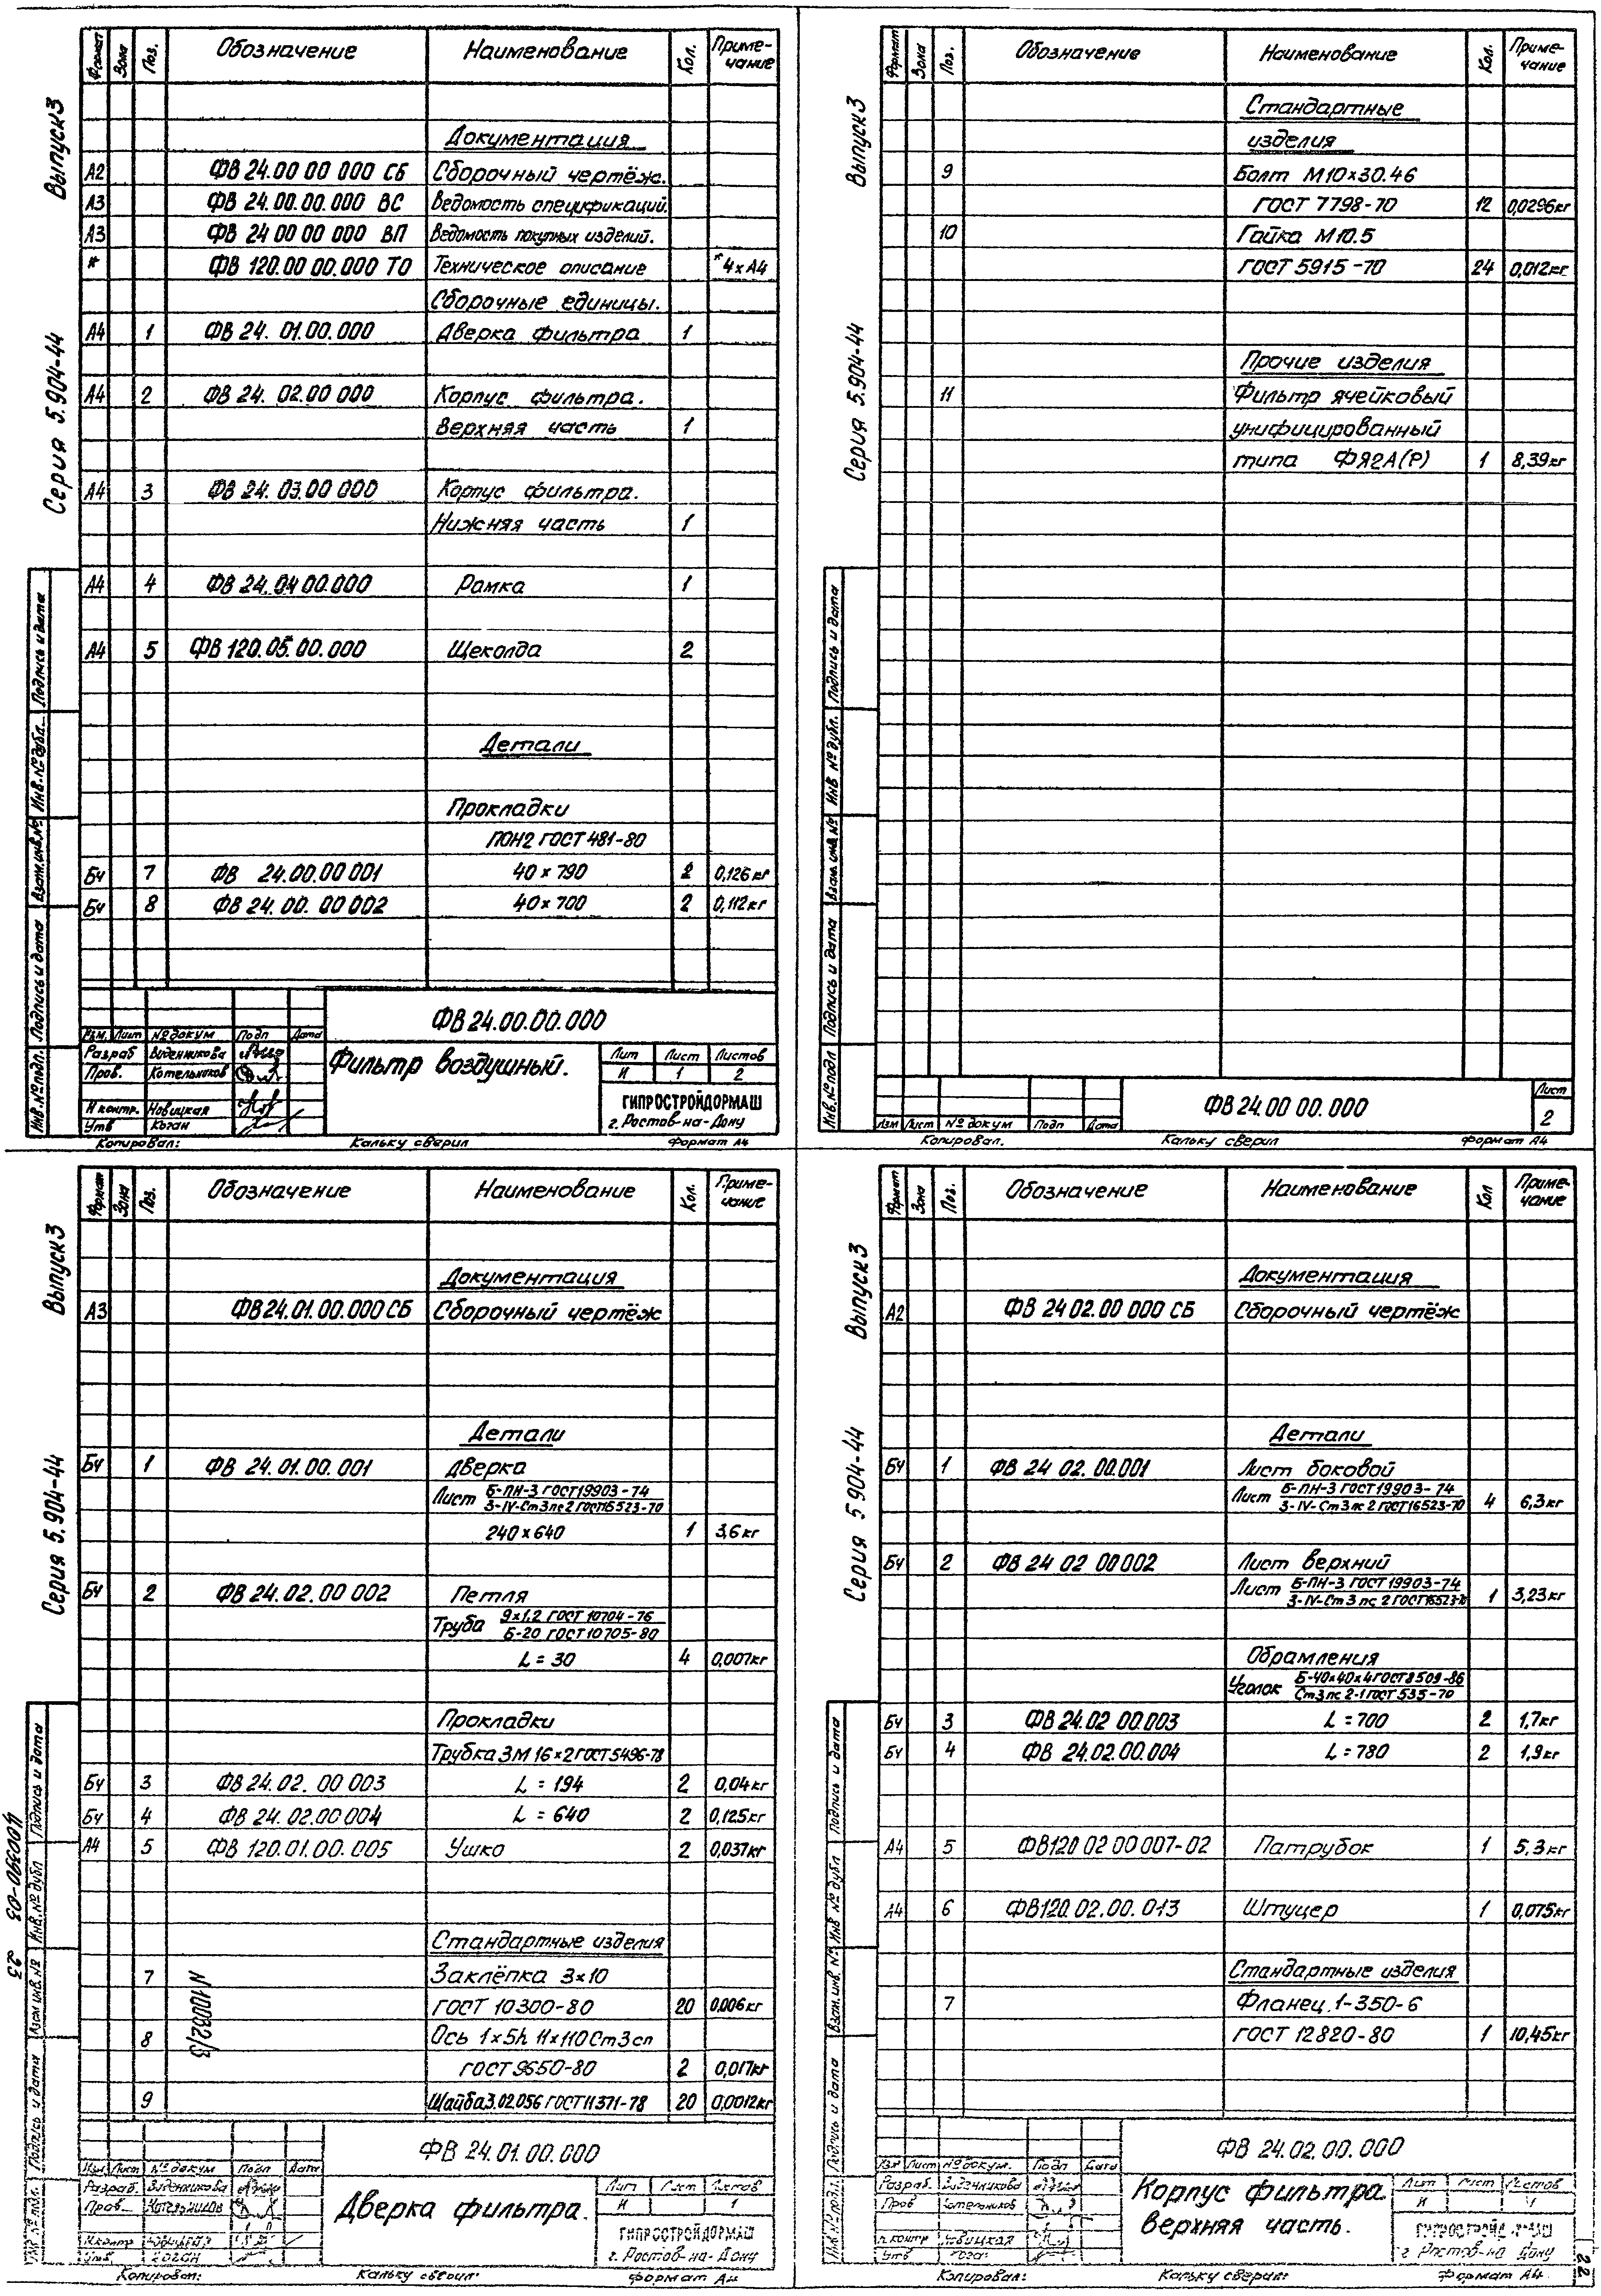 Выпуск 3
Серия 5.904-44
Формат Зона Поз. Обозначение Наименование Кол. Приме-
чание
Документация
А2 ФВ 24.00 00 000 СБ Сборочный чертёж.
А3 ФВ 24.00.00.000 ВС Ведомость спецификаций.
А3 ФВ 24 00 00 000 ВП Ведомость покупных изделий.
* ФВ 120.00 00.000 ТО Техническое описание *4×А4
Сборочные единицы.
А4 1 ФВ 24. 01.00.000 Дверка фильтра 1
А4 2 ФВ 24. 02.00 000 Корпус фильтра.
Верхняя часть 1
А4 3 ФВ 24. 03.00 000 Корпус фильтра.
Нижняя часть 1
А4 4 ФВ 24.04 00.000 Рамка 1
А4 5 ФВ 120.05.00.000 Щеколда 2
Детали
Прокладки
ПОН2 ГОСТ 481-80
Бч 7 ФВ 24.00.00 001 40×790 2 0,126кг
Бч 8 ФВ 24. 00. 00 002 40×700 2 0,112кг
Инв.№подл. Подпись и дата Взам.инв.№ Инв.№дубл. Подпись и дата
ФВ 24.00.00.000
Изм. Лист №докум Подп Дата
Разраб Виденикова
Пров. Котельников
Н контр. Новицкая
Утв Коган
Фильтр воздушный.
Лит Лист Листов
И 1 2
ГИПРОСТРОЙДОРМАШ
г. Ростов-на-Дону
Копировал: Кальку сверил Формат А4
Выпуск 3
Серия 5.904-44
Формат Зона Поз. Обозначение Наименование Кол. Приме-
чание
Стандартные
изделия
9 Болт М10×30.46
ГОСТ 7798-70 12 0,0296кг
10 Гайка М10.5
ГОСТ 5915-70 24 0,012кг
Прочие изделия
11 Фильтр ячейковый
унифицированный
типа ФЯ2А(Р) 1 8,39кг
Инв.№подл Подпись и дата Взам. инв. № Инв №дубл. Подпись и дата
Изм Лист №докум Подп Дата
ФВ 24.00 00.000
Лист
2
Копировал. Кальку сверил Формат А4
Выпуск 3
Серия 5.904-44
Формат Зона Поз. Обозначение Наименование Кол. Приме-
чание
Документация
А3 ФВ 24.01.00.000 СБ Сборочный чертёж
Детали
Бч 1 ФВ 24.01.00.001 Дверка
Лист Б-ПН-3 ГОСТ19903-74
3-IV-Ст3пс2 ГОСТ16523-70
240×640 1 3,6кг
Бч 2 ФВ 24.02.00 002 Петля
Труба 9×1.2 ГОСТ 10704-76
Б-20 ГОСТ10705-80
L=30 4 0,007кг
Прокладки
Трубка 3М 16×2 ГОСТ5496-78
Бч 3 ФВ 24.02. 00 003 L = 194 2 0,04кг
Бч 4 ФВ 24. 02.00 004 L = 640 2 0,125кг
А4 5 ФВ 120.01.00.005 Ушко 2 0,037кг
Стандартные изделия
7 Заклёпка 3×10
ГОСТ 10300-80 20 0,006кг
8 Ось 1×5h 11×110Ст3сп
ГОСТ9650-80 2 0,017кг
9 Шайба3.02.056 ГОСТ11371-78 20 0,0012кг
N10032/3
400390-03 23
Инв.№подл. Подпись и дата Взам инв. № Инв.№дубл Подпись и дата
ФВ 24.01.00.000
Изм Лист №докум Подп Дата
Разраб. Виденикова
Пров Котельников
Н контр Новицкая
Утв Коган
Дверка фильтра.
Лит Лист Листов
И 1
ГИПРОСТРОЙДОРМАШ
г. Ростов-на-Дону
Копировал: Кальку сверил: формат А4
Выпуск 3
Серия 5 904-44
Формат Зона Поз. Обозначение Наименование Кол Приме-
чание
Документация
А2 ФВ 24 02.00 000 СБ Сборочный чертёж
Детали
Бч 1 ФВ 24 02. 00.001 Лист боковой
Лист Б-ПН-3 ГОСТ19903-74
3-IV-Ст3пс2 ГОСТ16523-70 4 6,3кг
Бч 2 ФВ 24 02 00 002 Лист верхний
Лист Б-ПН-3 ГОСТ19903-74
3-IV-Ст3пс2 ГОСТ16523-70 1 3,23кг
Обрамления
Уголок Б-40×40×4 ГОСТ8509-86
Ст3пс2-1 ГОСТ 535-70
Бч 3 ФВ 24.02 00.003 L=700 2 1,7кг
Бч 4 ФВ 24.02.00.004 L=780 2 1,9кг
А4 5 ФВ120 02 00 007-02 Патрубок 1 5,3кг
А4 6 ФВ120.02.00.013 Штуцер 1 0,075кг
Стандартные изделия
7 Фланец.1-350-6
ГОСТ 12820-80 1 10,45кг
Инв.№подл. Подпись и дата Взам.инв. № Инв №дубл Подпись и дата
ФВ 24.02.00.000
Изм Лист №докум. Подп Дата
Разраб. Виденикова
Пров Котельников
Н контр Новицкая
Утв Коган
Корпус фильтра.
Верхняя часть.
Лит Лист Листов
И 1
ГИПРОСТРОЙДОРМАШ
г Ростов-на Дону
Копировал: Кальку сверил: Формат А4
22